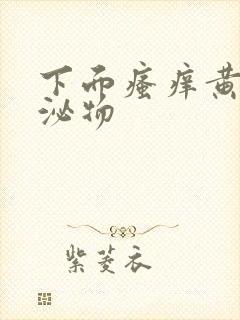 下面瘙痒黄
泌物
紫菱衣